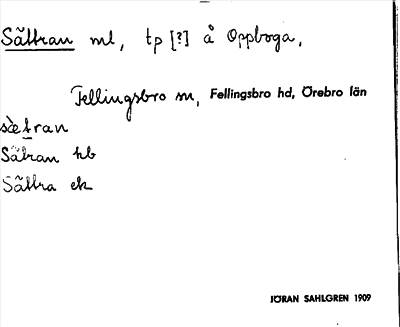 Sättran ml, tp [?] å Oppboga.
Fellingsbro sn, Fellingsbro hd, Örebro län
sætran
Sätran hb
Sättra ek
JÖRAN SAHLGREN 1909